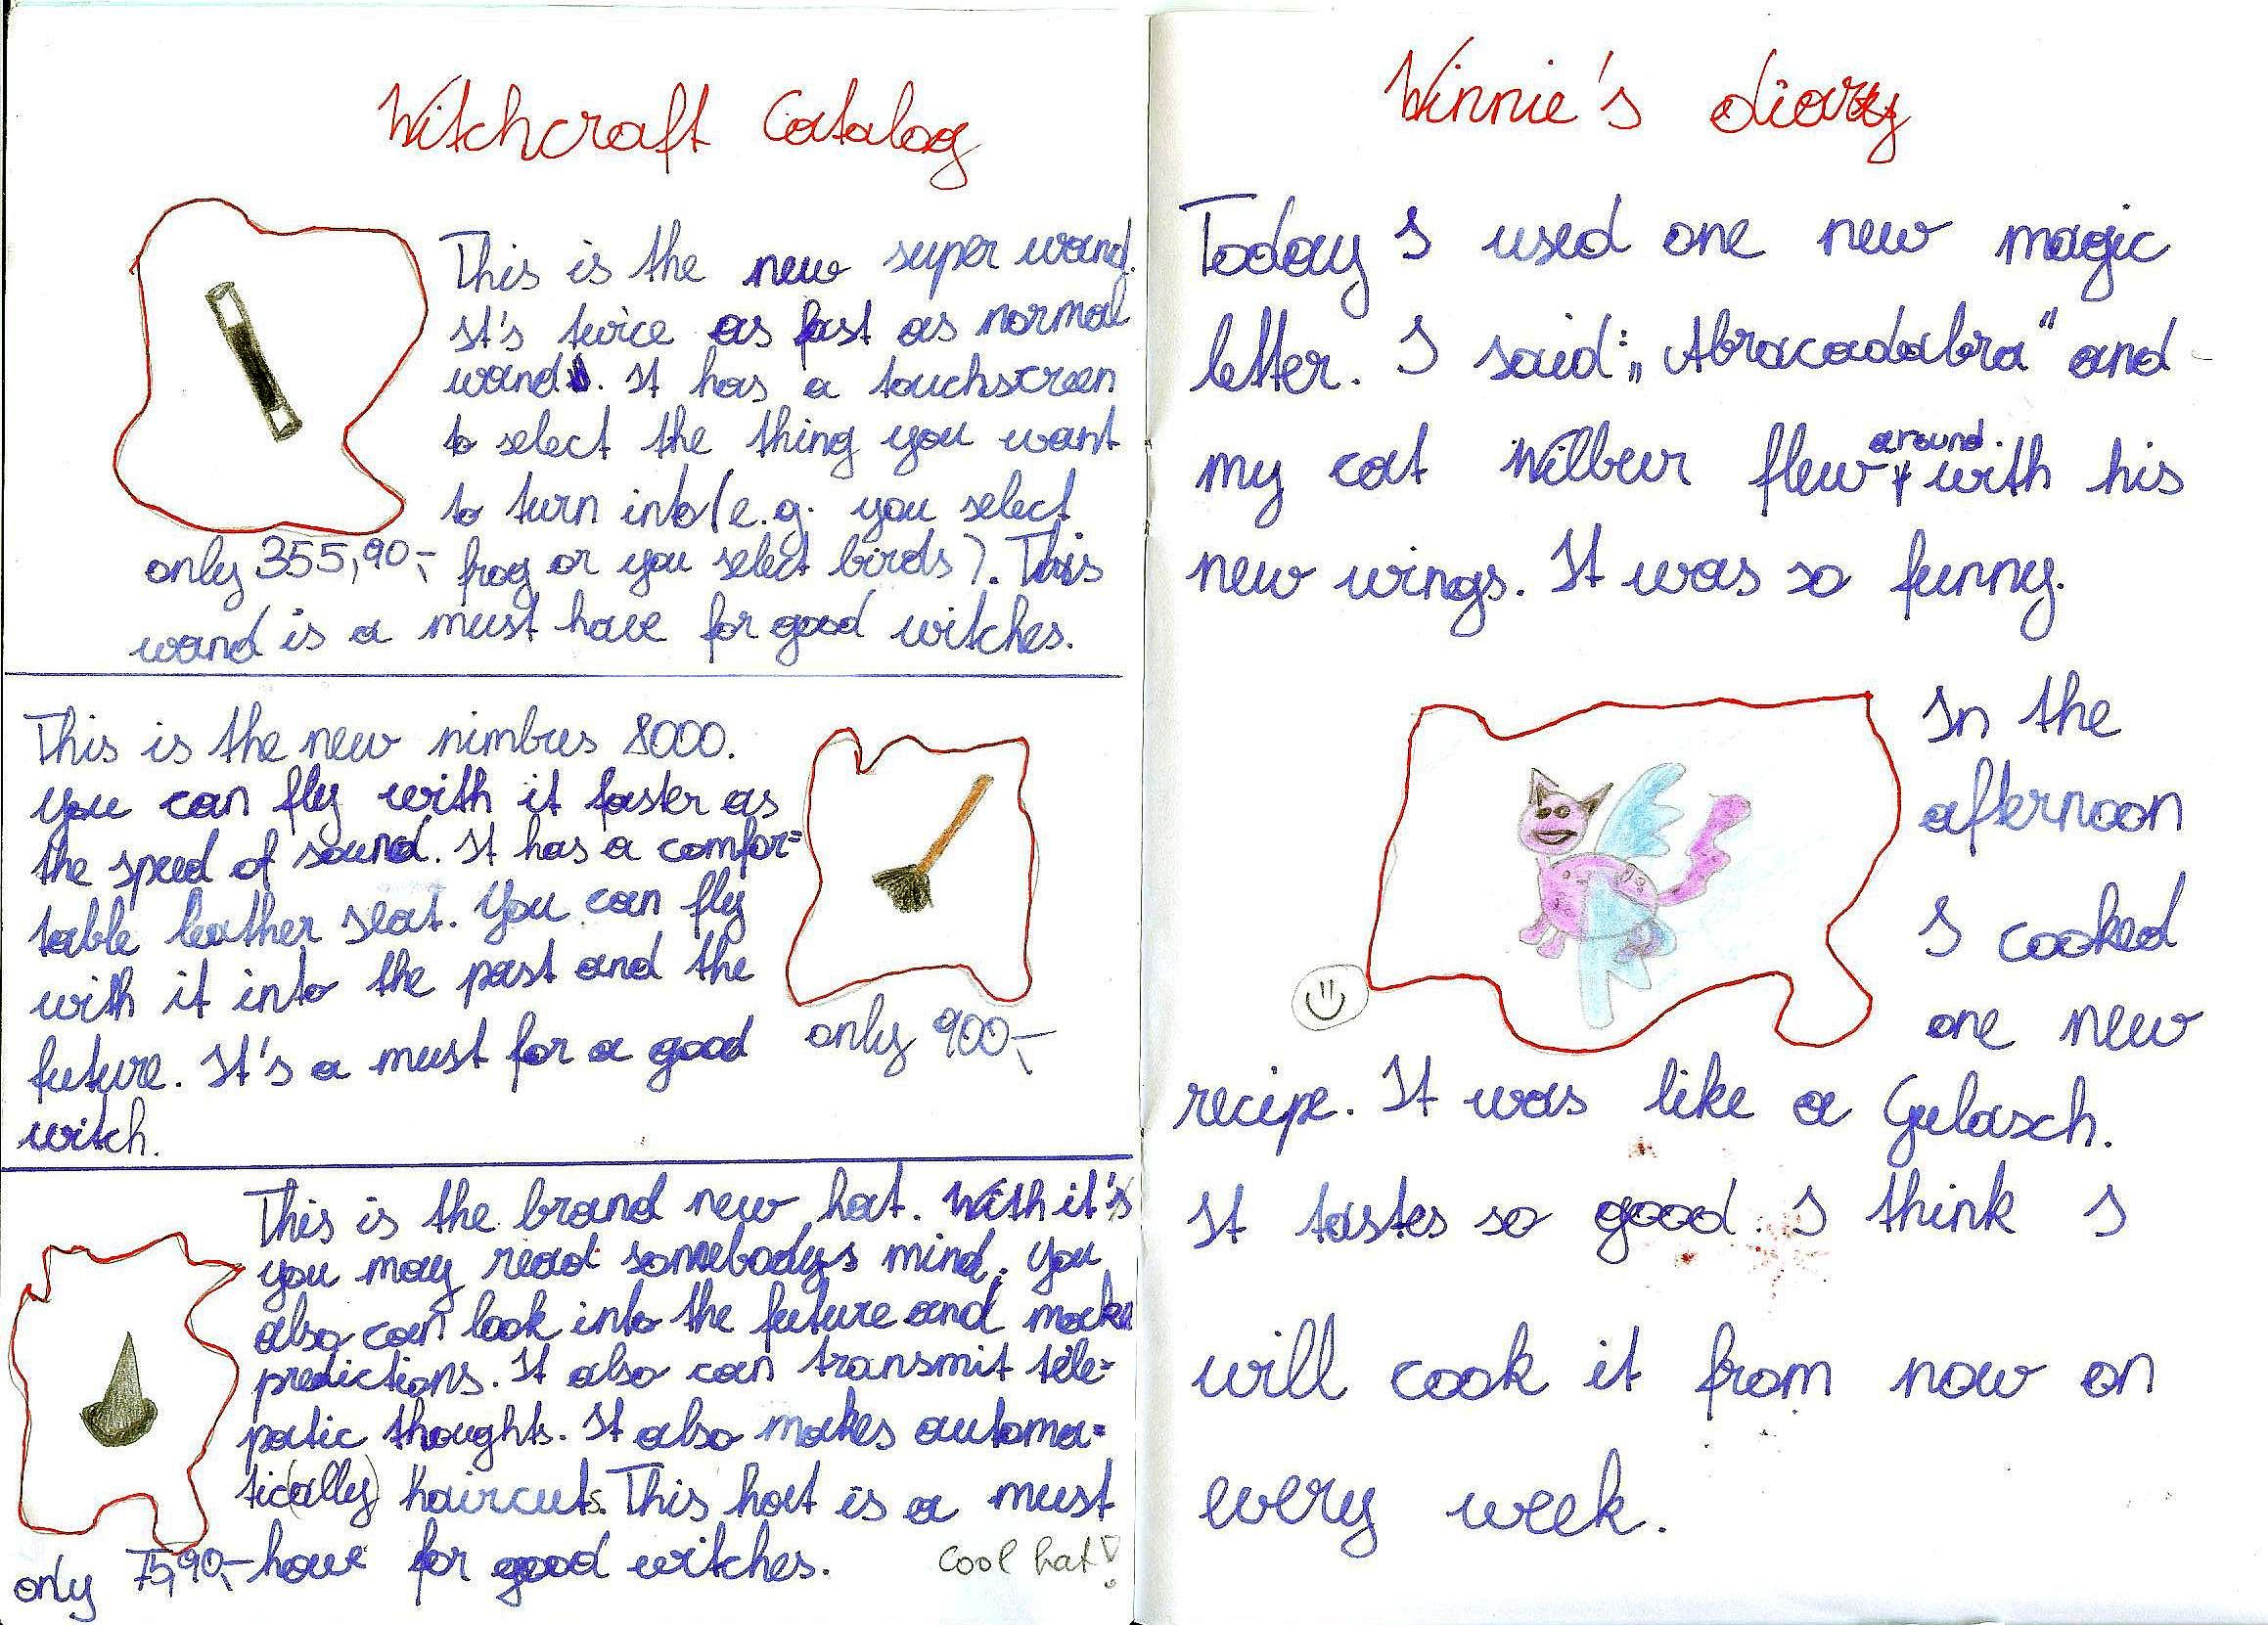 Witchcraft Catalog
This is the new super wand.
It's twice as fast as normal
wands. It has a touchscreen
to select the thing you want
to turn into (e.g. you select
only 355,90,- frog or you select birds). This
wand is a must have for good witches.
This is the new nimbus 8000.
you can fly with it faster as
the speed of sound. It has a comfor=
table leather seat. You can fly
with it into the past and the
future. It's a must for a good
witch.
only 900,-
This is the brand new hat. With it's
you may read somebodys mind. You
also can look into the future and make
predictions. It also can transmit tele=
patic thoughts. It also makes automa=
tic(ally) haircuts. This hat is a must
only 75,90,- have for good witches.
cool hat!
Winnie's diary
Today I used one new magic
letter. I said: „Abracadabra" and
my cat Wilbur flew around with his
new wings. It was so funny.
In the
afternoon
I cooked
one new
recipe. It was like a Gulasch.
It tastes so good. I think I
will cook it from now on
every week.